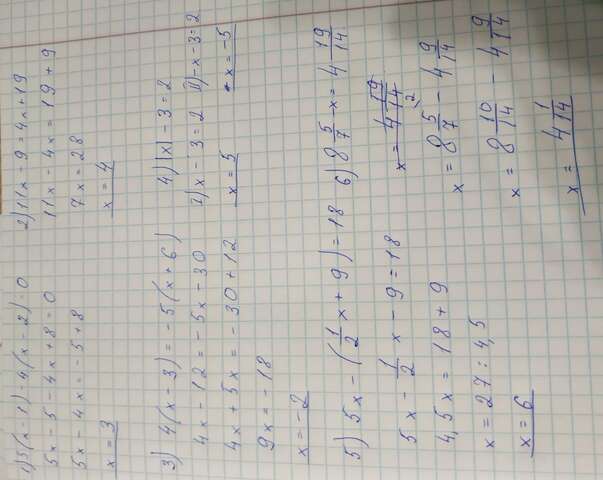 1) 5(x-1)-4(x-2)=0
5x-5-4x+8=0
5x-4x=-5+8
x=3
2) 11x-9=4x+19
11x-4x=19+9
7x=28
x=4
3) 4(x-3)=-5(x+6)
4x-12=-5x-30
4x+5x=-30+12
9x=-18
x=-2
4) |x|-3=2
x-3=2 -x-3=2
x=5 x=-5
5) 5x-(1/2 x+9)=18
5x-1/2 x-9=18
4,5x=18+9
x=27:4,5
x=6
6) 8 5/7-x=4 9/14
x=8 5/7-4 9/14
x=8 10/14-4 9/14
x=4 1/14